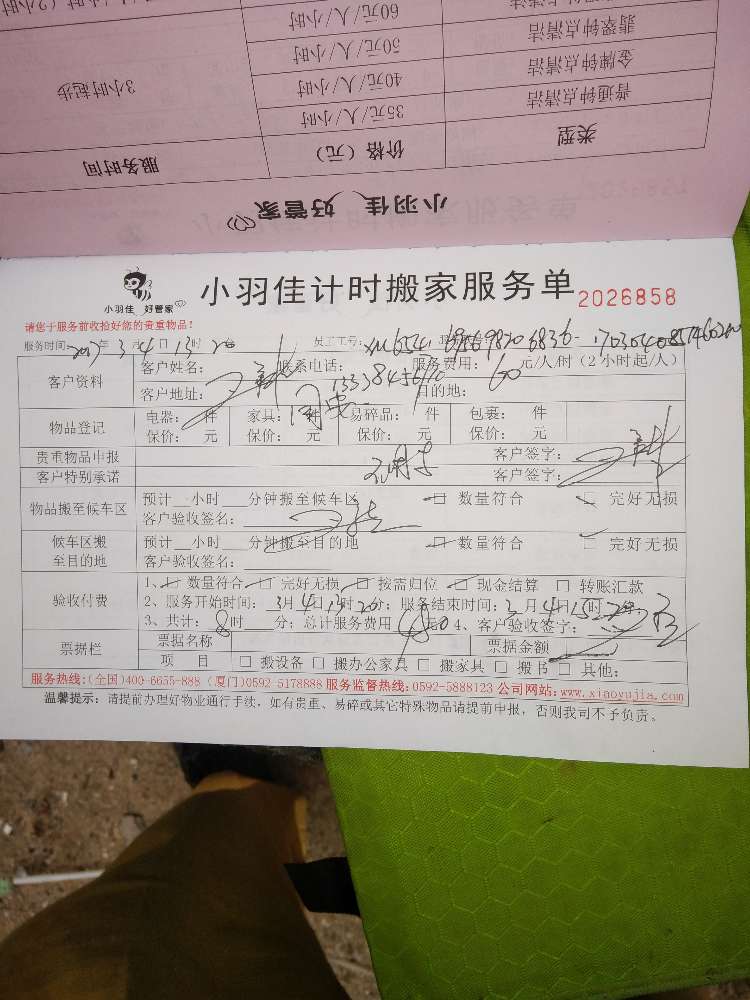 60元/人/小时
翡翠钟点清洁 50元/人/小时
金牌钟点清洁 40元/人/小时 3小时起步
普通钟点清洁 35元/人/小时
类型 价格（元） 服务时间
小羽佳 好管家
小羽佳 好管家
小羽佳计时搬家服务单 2026858
请您于服务前收拾好您的贵重物品！
服务时间: 2017年 3月 4日 13时 20 员工工号:
客户资料 客户姓名: 联系电话: 服务费用: 60 元/人/时（2小时起/人）
客户地址: 同安 目的地:
物品登记 电器: 件 家具: 件 易碎品: 件 包裹: 件
保价: 元 保价: 元 保价: 元 保价: 元
贵重物品申报 客户签字:
客户特别承诺 客户签字:
物品搬至候车区 预计 小时 分钟搬至候车区 数量符合 完好无损
客户验收签名:
候车区搬至目的地 预计 小时 分钟搬至目的地 数量符合 完好无损
客户验收签名:
验收付费 1、数量符合 完好无损 按需归位 现金结算 转账汇款
2、服务开始时间: 3月4日13时20分; 服务结束时间: 3月4日15时20分;
3、共计: 8时 分; 总计服务费用 480元 4、客户验收签字:
票据栏 票据名称 票据金额
项 目 搬设备 搬办公家具 搬家具 搬书 其他:
服务热线:(全国)400-6655-888 (厦门)0592-5178888 服务监督热线:0592-5888123 公司网站:www.xiaoyujia.com
温馨提示: 请提前办理好物业通行手续，如有贵重、易碎或其它特殊物品请提前申报，否则我司不予负责。